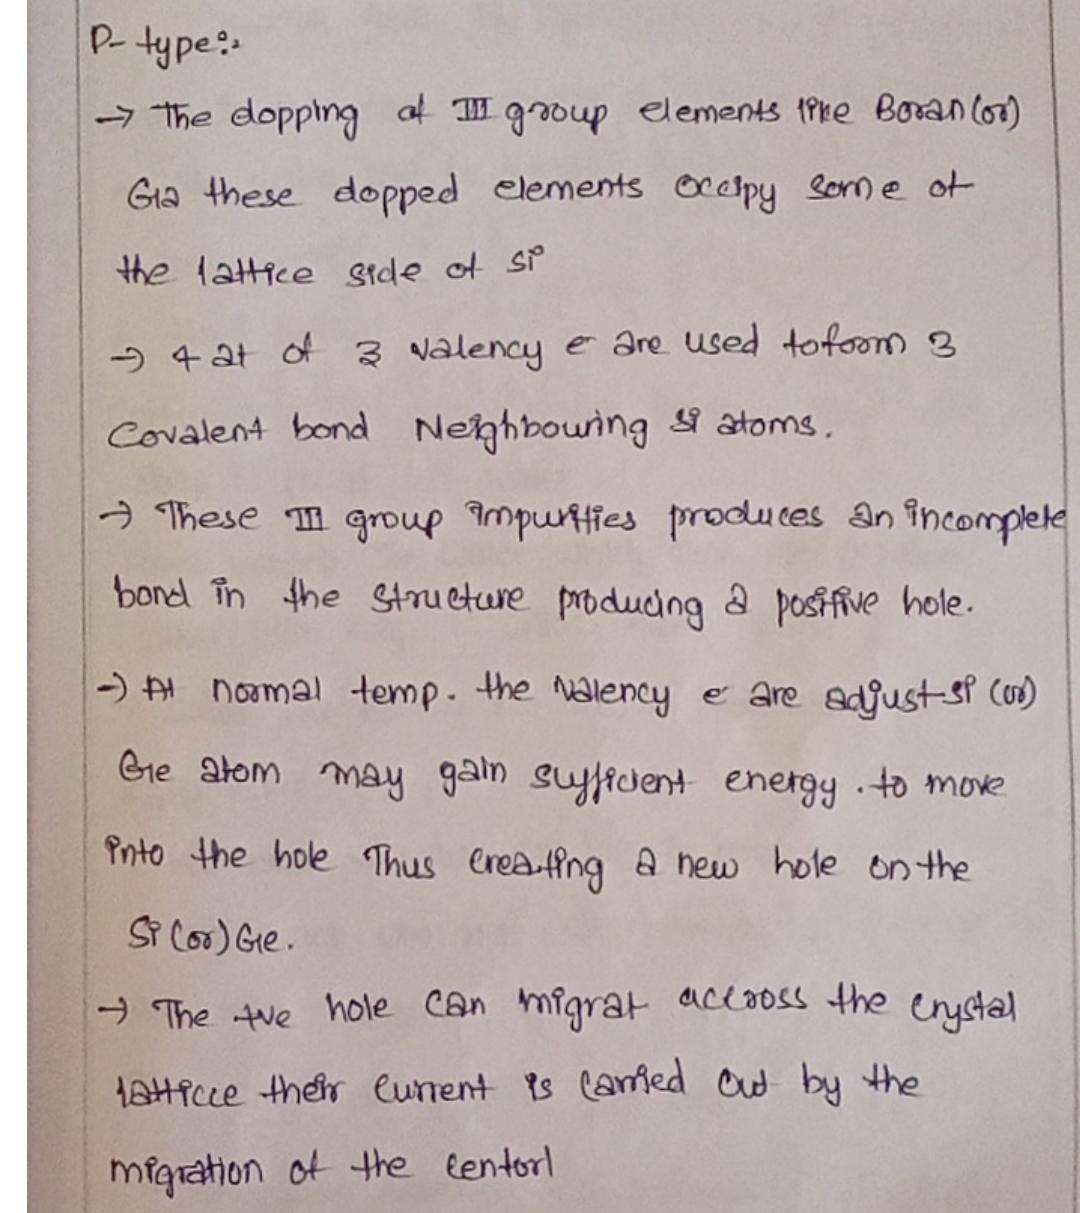 P- type:-
→ The dopping of III group elements like Boran (or)
Ga these dopped elements occipy some of
the lattice side of si
→ 4 at of 3 valency e are used toform 3
Covalent bond Neighbouring si atoms.
→ These III group impurities produces an incomplete
bond in the structure producing a positive hole.
→ At normal temp. the valency e are adjust si (or)
Ge atom may gain sufficient energy . to move
into the hole Thus creating a new hole on the
Si (or) Ge.
→ The +ve hole can migrat accross the crystal
latticce their current is carried out by the
migration of the centorl